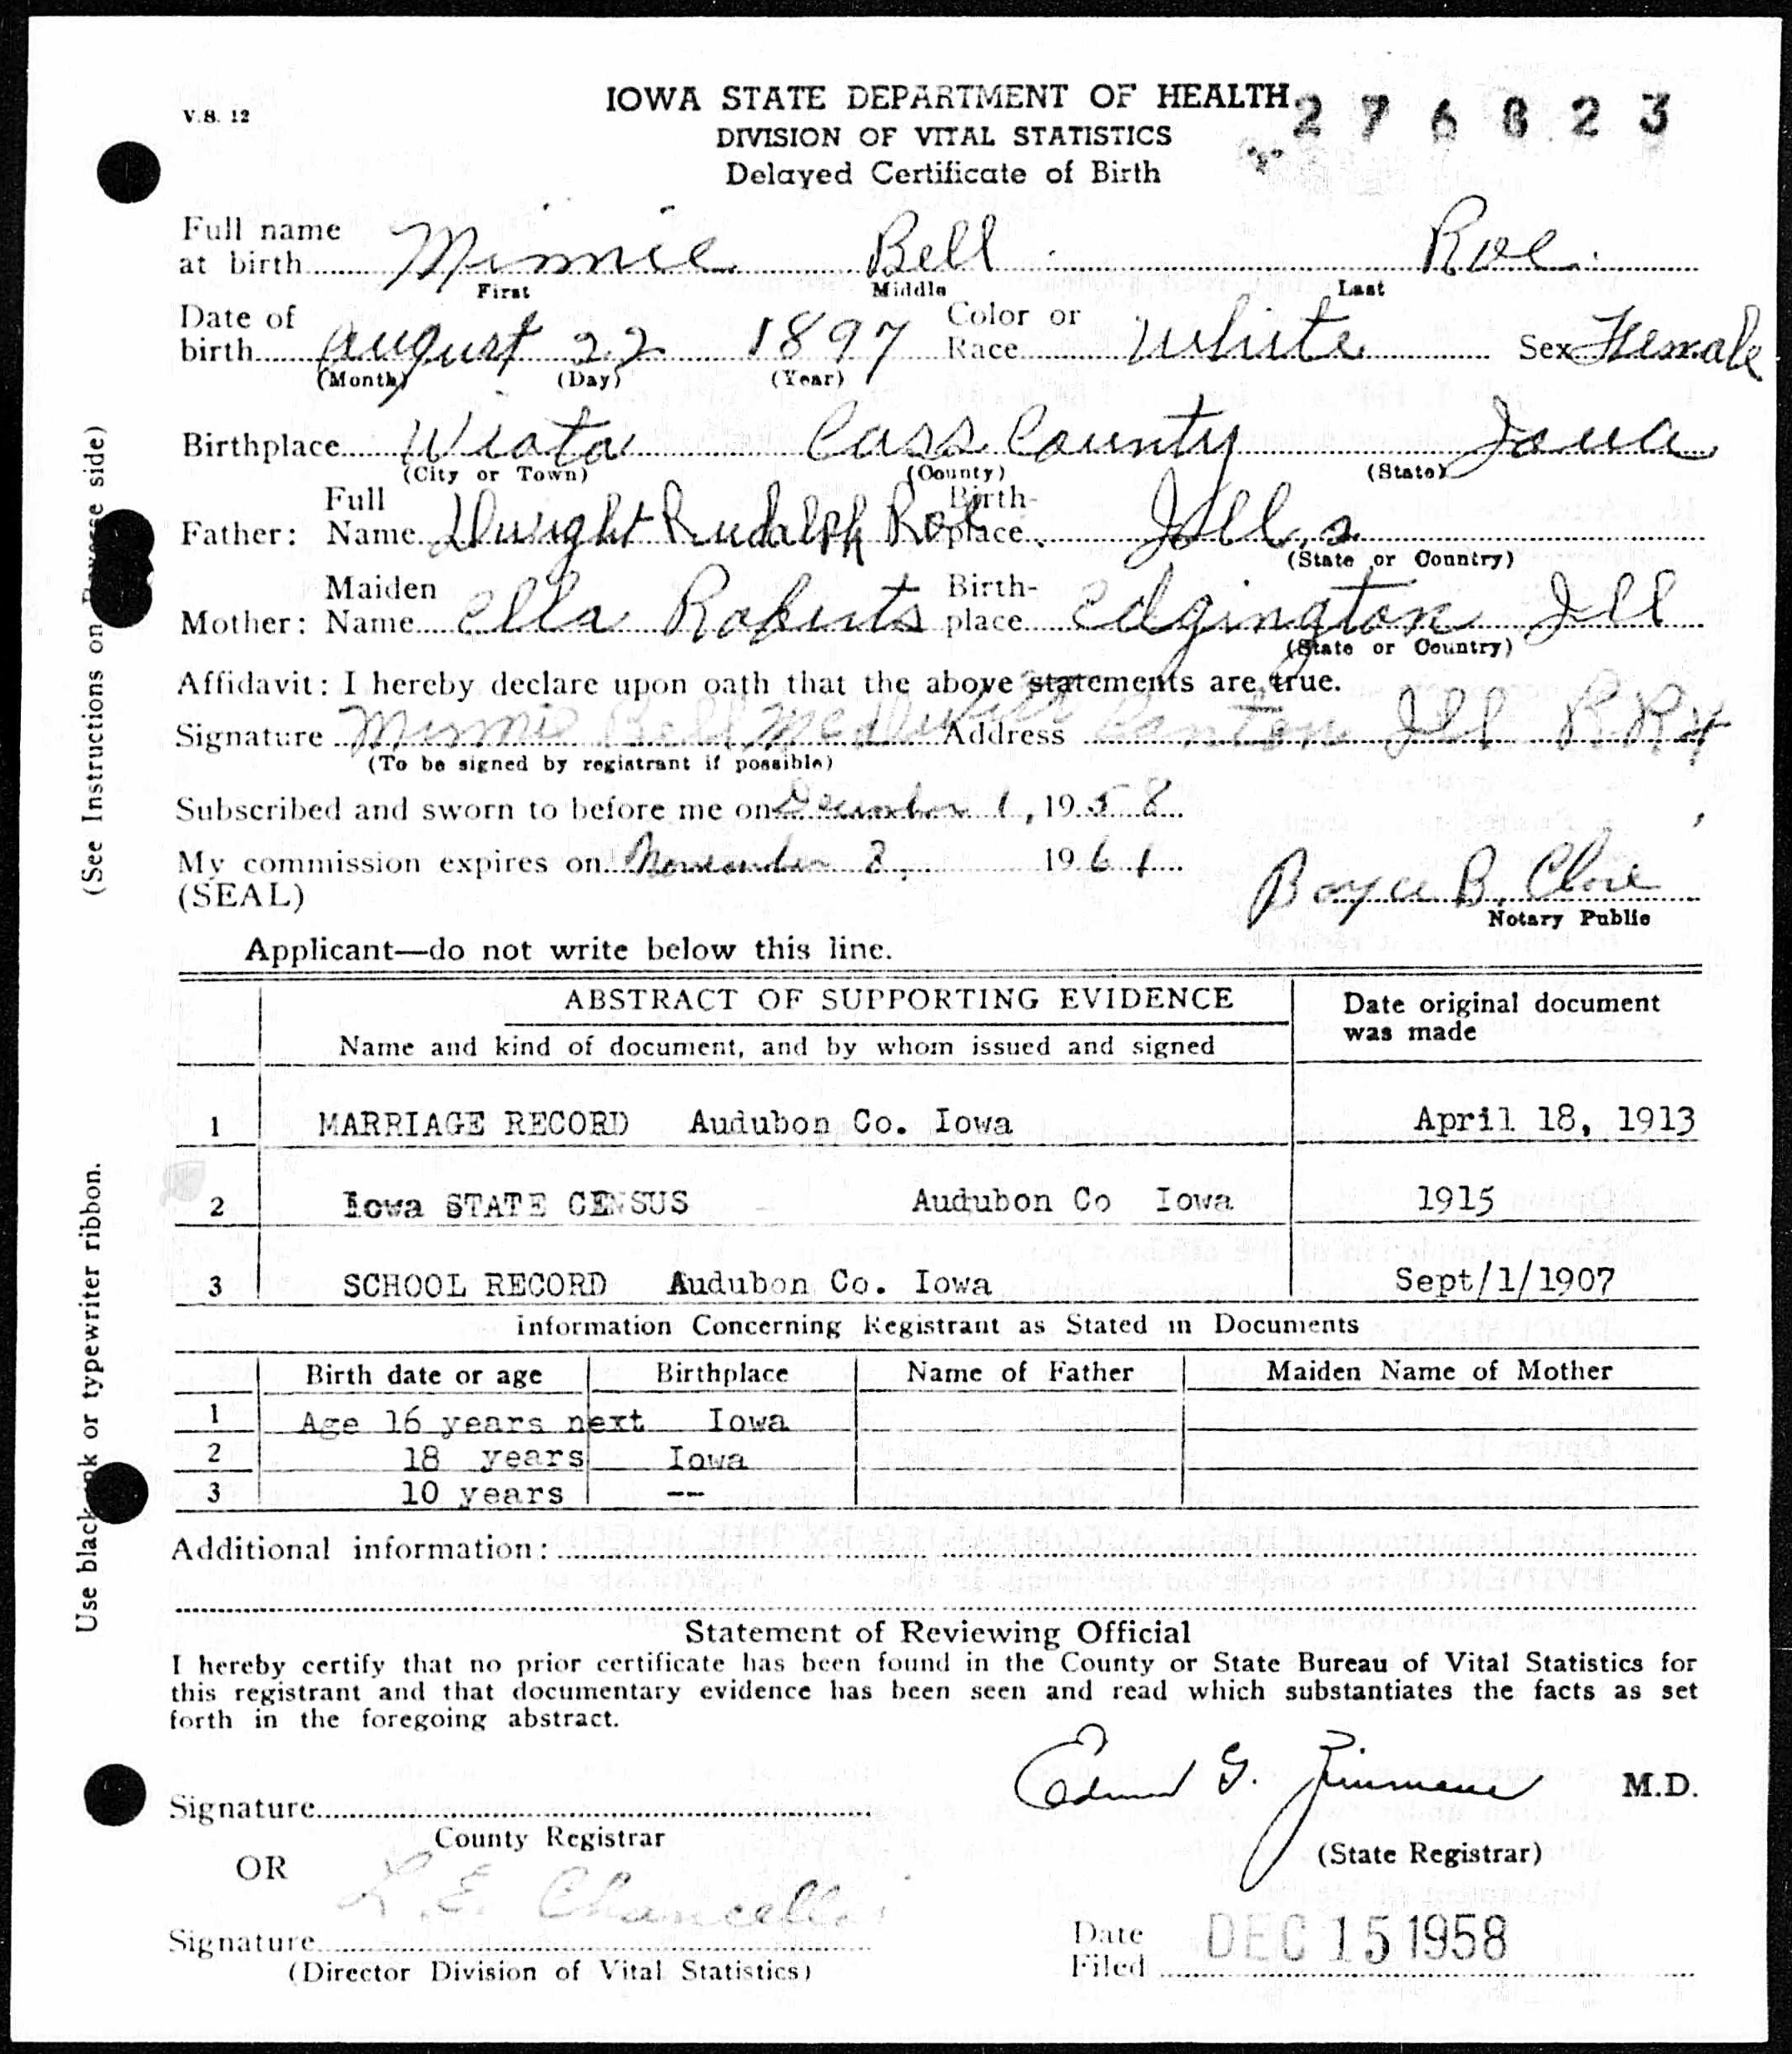 V.S. 12
IOWA STATE DEPARTMENT OF HEALTH
276823
DIVISION OF VITAL STATISTICS
Delayed Certificate of Birth
Full name
at birth Minnie Bell Roe
First Middle Last
Date of Color or
birth August 22 1897 Race White Sex Female
(Month) (Day) (Year)
Birthplace Wiota Cass County Iowa
(City or Town) (County) (State)
Full Birth-
Father: Name Dwight Rudalph Roe place Ill,s
(State or Country)
Maiden Birth-
Mother: Name Ella Roberts place Edgington Ill
(State or Country)
Affidavit: I hereby declare upon oath that the above statements are true.
Signature Minnie Bell Address Canton Ill RR4
(To be signed by registrant if possible)
Subscribed and sworn to before me on December 1, 1958
My commission expires on November 2, 1961
(SEAL)
Boyce B. Clore
Notary Public
Applicant—do not write below this line.
ABSTRACT OF SUPPORTING EVIDENCE Date original document
Name and kind of document, and by whom issued and signed was made
1 MARRIAGE RECORD Audubon Co. Iowa April 18, 1913
2 Iowa STATE CENSUS Audubon Co Iowa 1915
3 SCHOOL RECORD Audubon Co. Iowa Sept/1/1907
Information Concerning Registrant as Stated in Documents
Birth date or age Birthplace Name of Father Maiden Name of Mother
1 Age 16 years next Iowa
2 18 years Iowa
3 10 years --
Additional information:
Statement of Reviewing Official
I hereby certify that no prior certificate has been found in the County or State Bureau of Vital Statistics for
this registrant and that documentary evidence has been seen and read which substantiates the facts as set
forth in the foregoing abstract.
Signature Edmund G. Zimmerer M.D.
County Registrar (State Registrar)
OR
L.E. Chancellor
Signature Date
Filed DEC 15 1958
(Director Division of Vital Statistics)
(See Instructions on Reverse side)
Use black ink or typewriter ribbon.